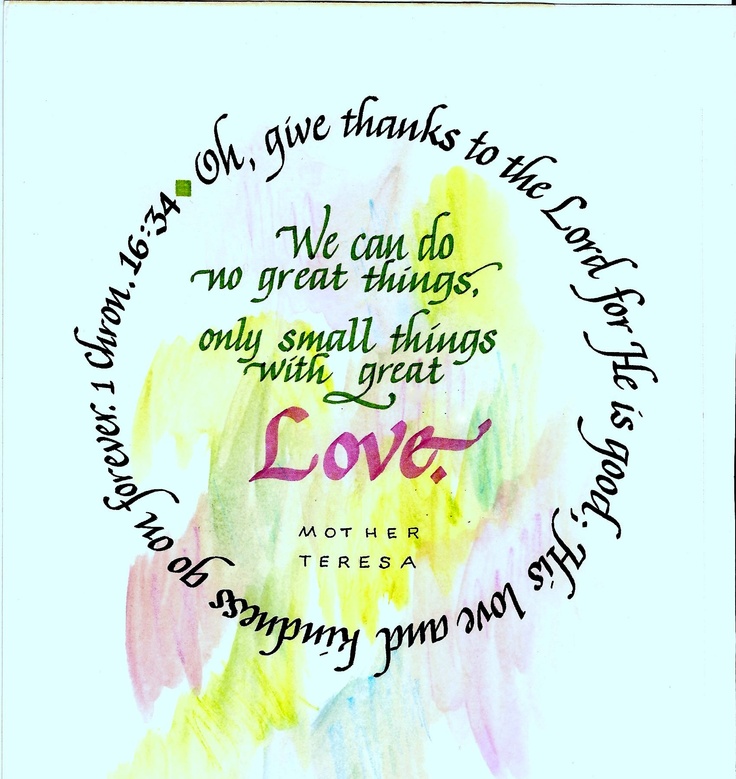 Oh, give thanks to the Lord for He is good; His love and kindness go on forever. 1 Chron. 16:34
We can do
no great things,
only small things
with great
Love.
MOTHER
TERESA